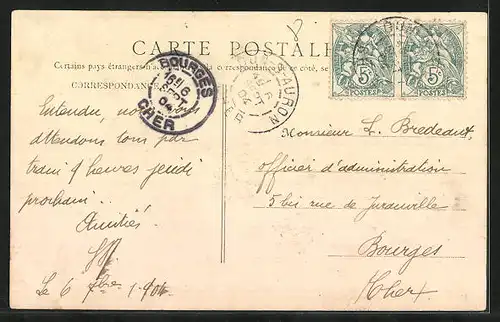 CARTE POSTALE
Certains pays étrangers n'acceptent pas la correspondance de ce
CORRESPONDANCE
BOURGES
SEPT
04
CHER
AURON
04
5c 5c
POSTES POSTES
Entendu, nous
attendons tous par
train 9 heures jeudi
prochain.
Amitiés
Le 6 7bre 1904
Monsieur L. Bredeaut,
officier d'administration
5 bis rue de Juranville
Bourges
(Cher)